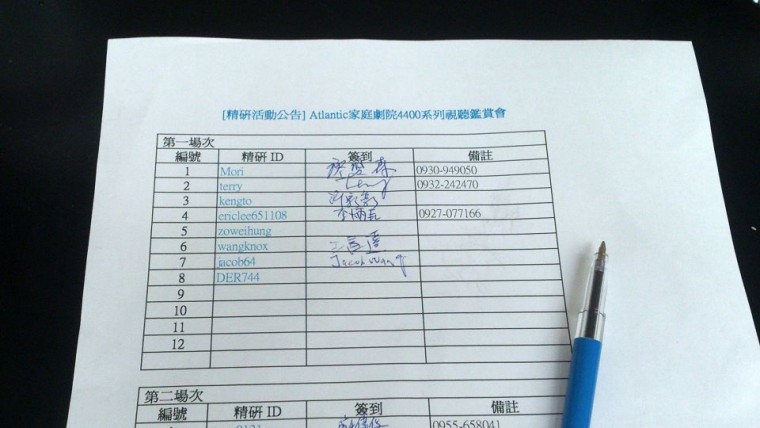 [精研活動公告] Atlantic家庭劇院4400系列視聽鑑賞會
第一場次
編號 精研 ID 簽到 備註
1 Mori 0930-949050
2 terry Terry 0932-242470
3 kengto
4 ericlee651108 0927-077166
5 zoweihung
6 wangknox
7 jacob64 Jacob Wang
8 DER744
9
10
11
12
第二場次
編號 精研 ID 簽到 備註
0955-658041